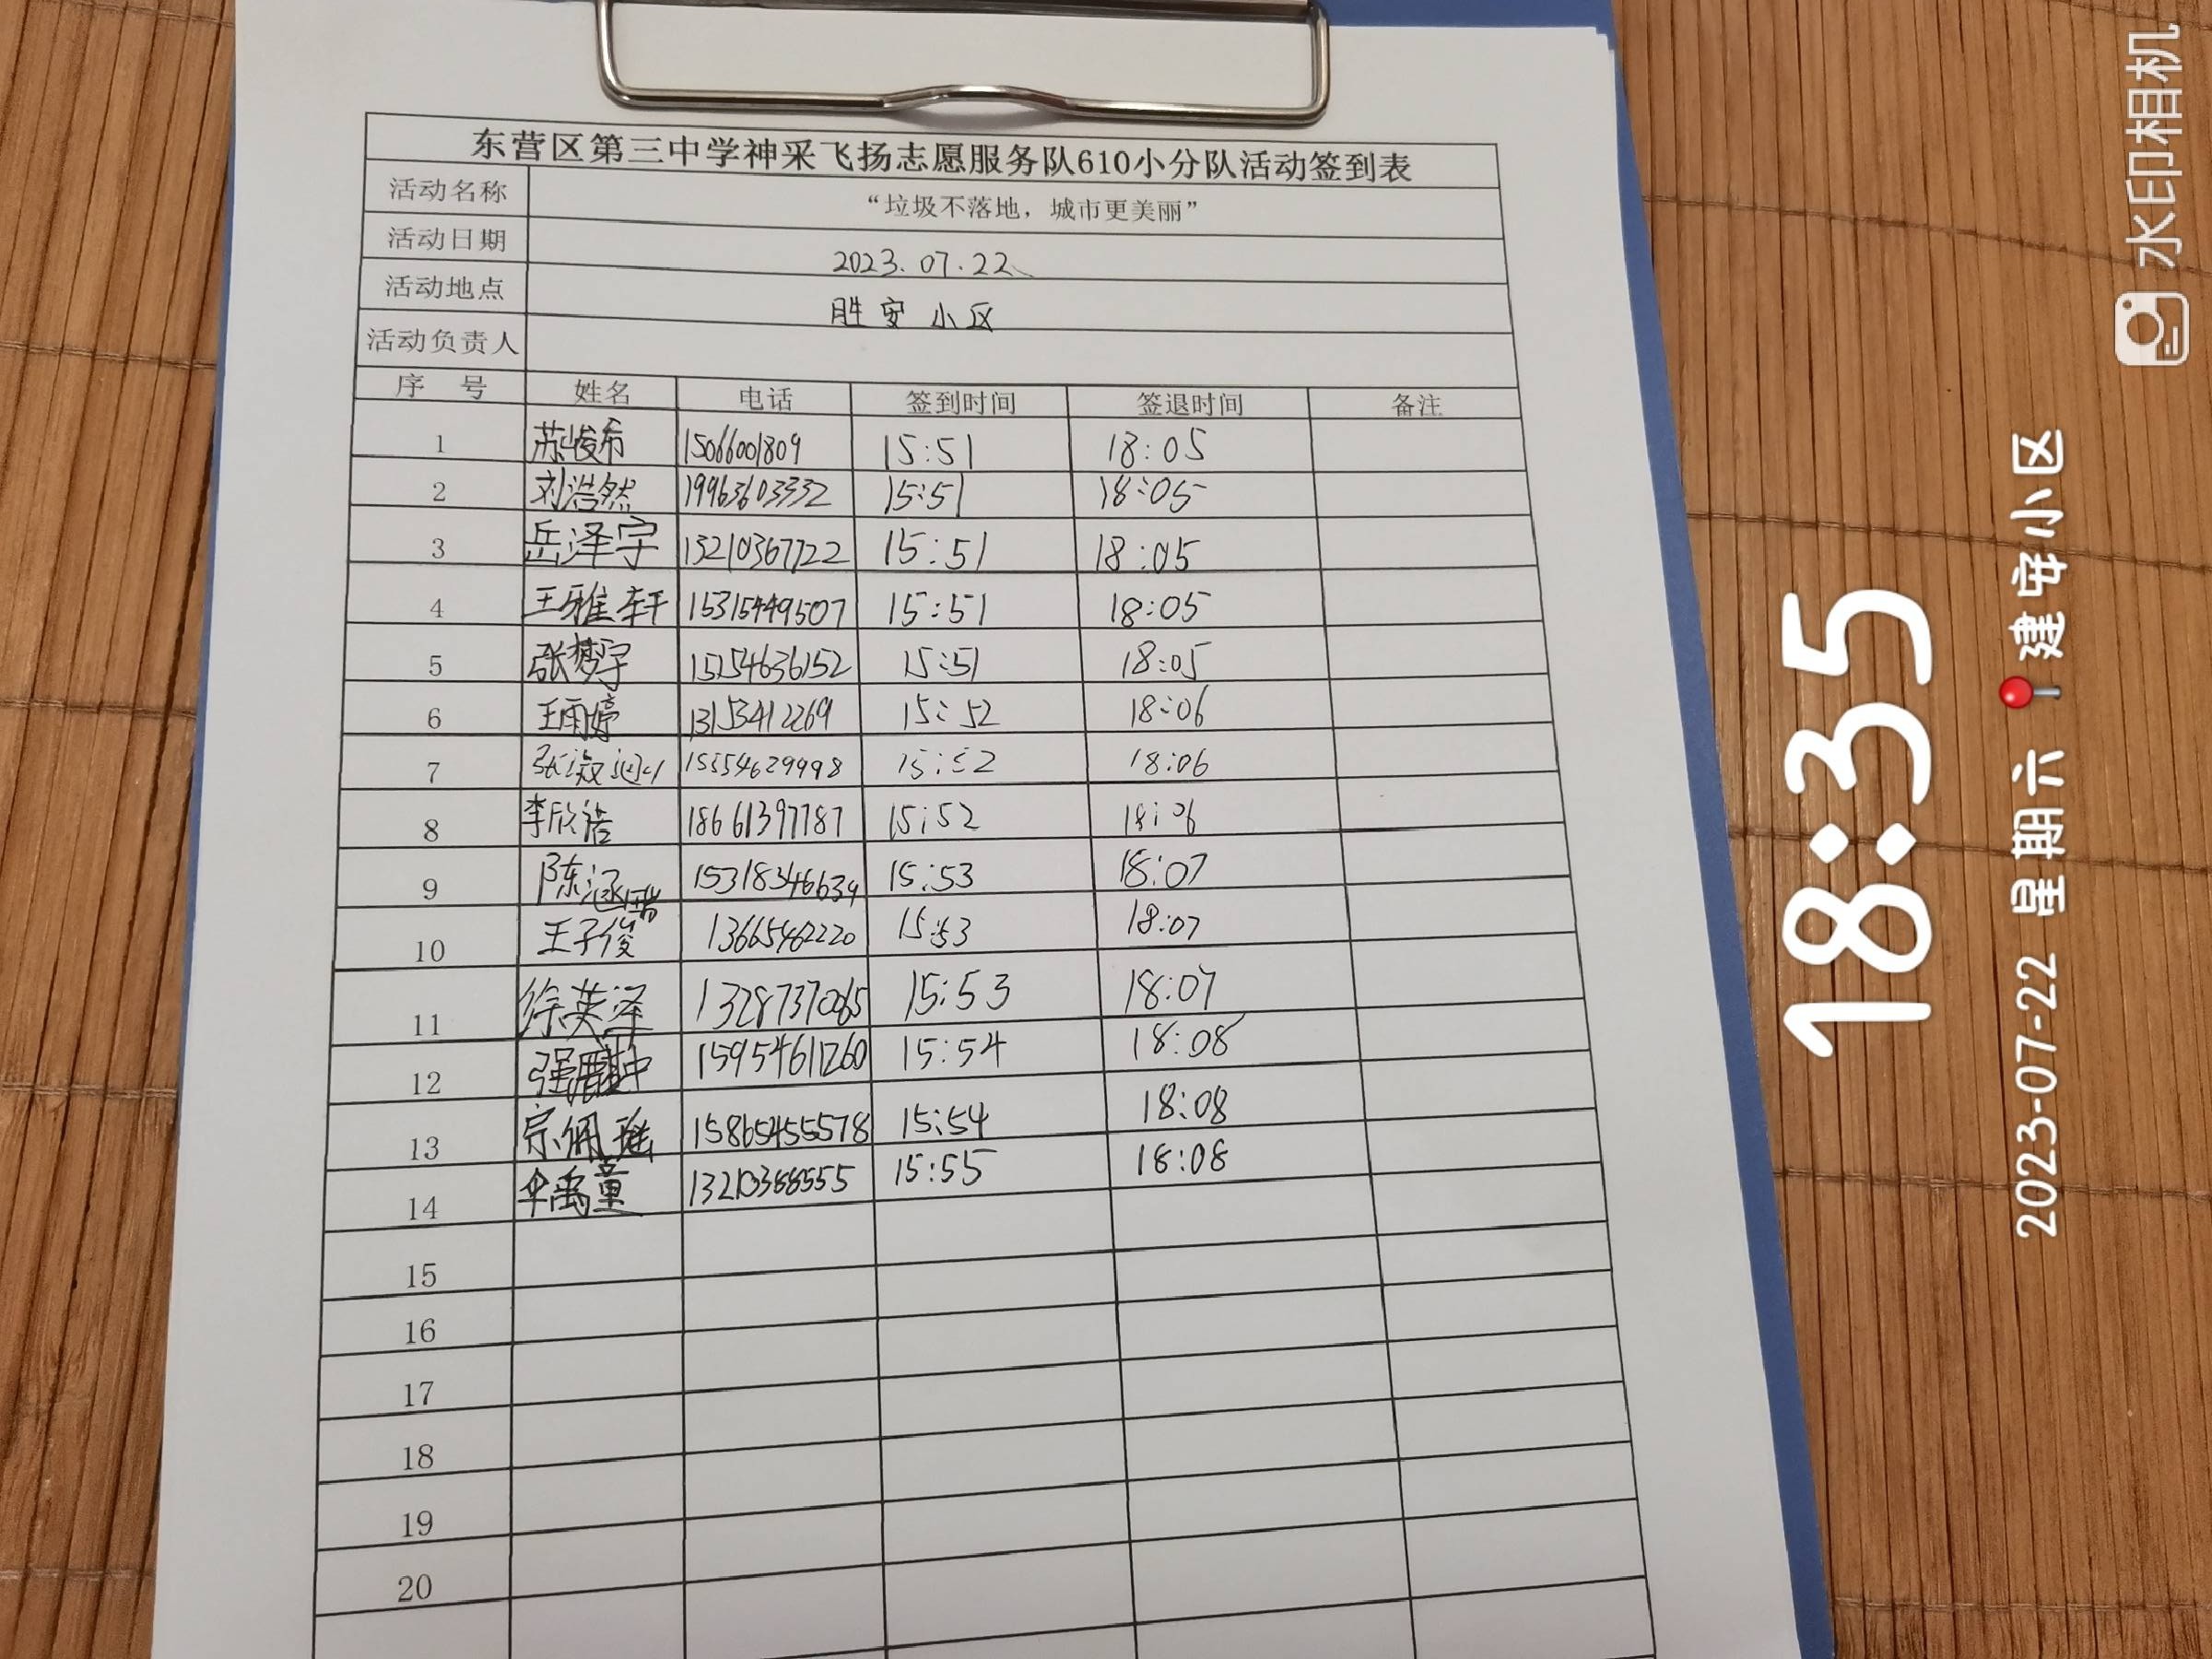 东营区第三中学神采飞扬志愿服务队610小分队活动签到表
活动名称 “垃圾不落地，城市更美丽”
活动日期 2023.07.22
活动地点 胜安小区
活动负责人
序 号 姓名 电话 签到时间 签退时间 备注
1 苏骏希 15066001809 15:51 18:05
2 刘浩然 19963603332 15:51 18:05
3 岳泽宇 13210367722 15:51 18:05
4 王雅轩 15315449507 15:51 18:05
5 张梦宇 15254636152 15:51 18:05
6 王雨婷 13153412269 15:52 18:06
7 15554629998 15:52 18:06
8 李欣浩 18661397787 15:52 18:06
9 陈涵瑞 15318346639 15:53 18:07
10 王子俊 13665462220 15:53 18:07
11 徐英泽 13287370065 15:53 18:07
12 15954611260 15:54 18:08
13 宗佩瑶 15865455578 15:54 18:08
14 伞禹童 13210388555 15:55 18:08
15
16
17
18
19
20
水印相机
18:35
2023-07-22 星期六 建安小区